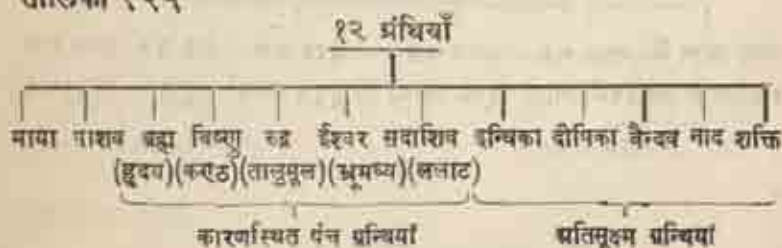 १२ ग्रंथियाँ
माया पाशव ब्रह्म विष्णु रुद्र ईश्वर सदाशिव इन्धिका दीपिका बैन्दव नाद शक्ति
(हृदय)(कण्ठ)(तालुमूल)(भ्रूमध्य)(ललाट)
कारणस्थित पंच ग्रन्थियाँ अतिसूक्ष्म ग्रन्थियां